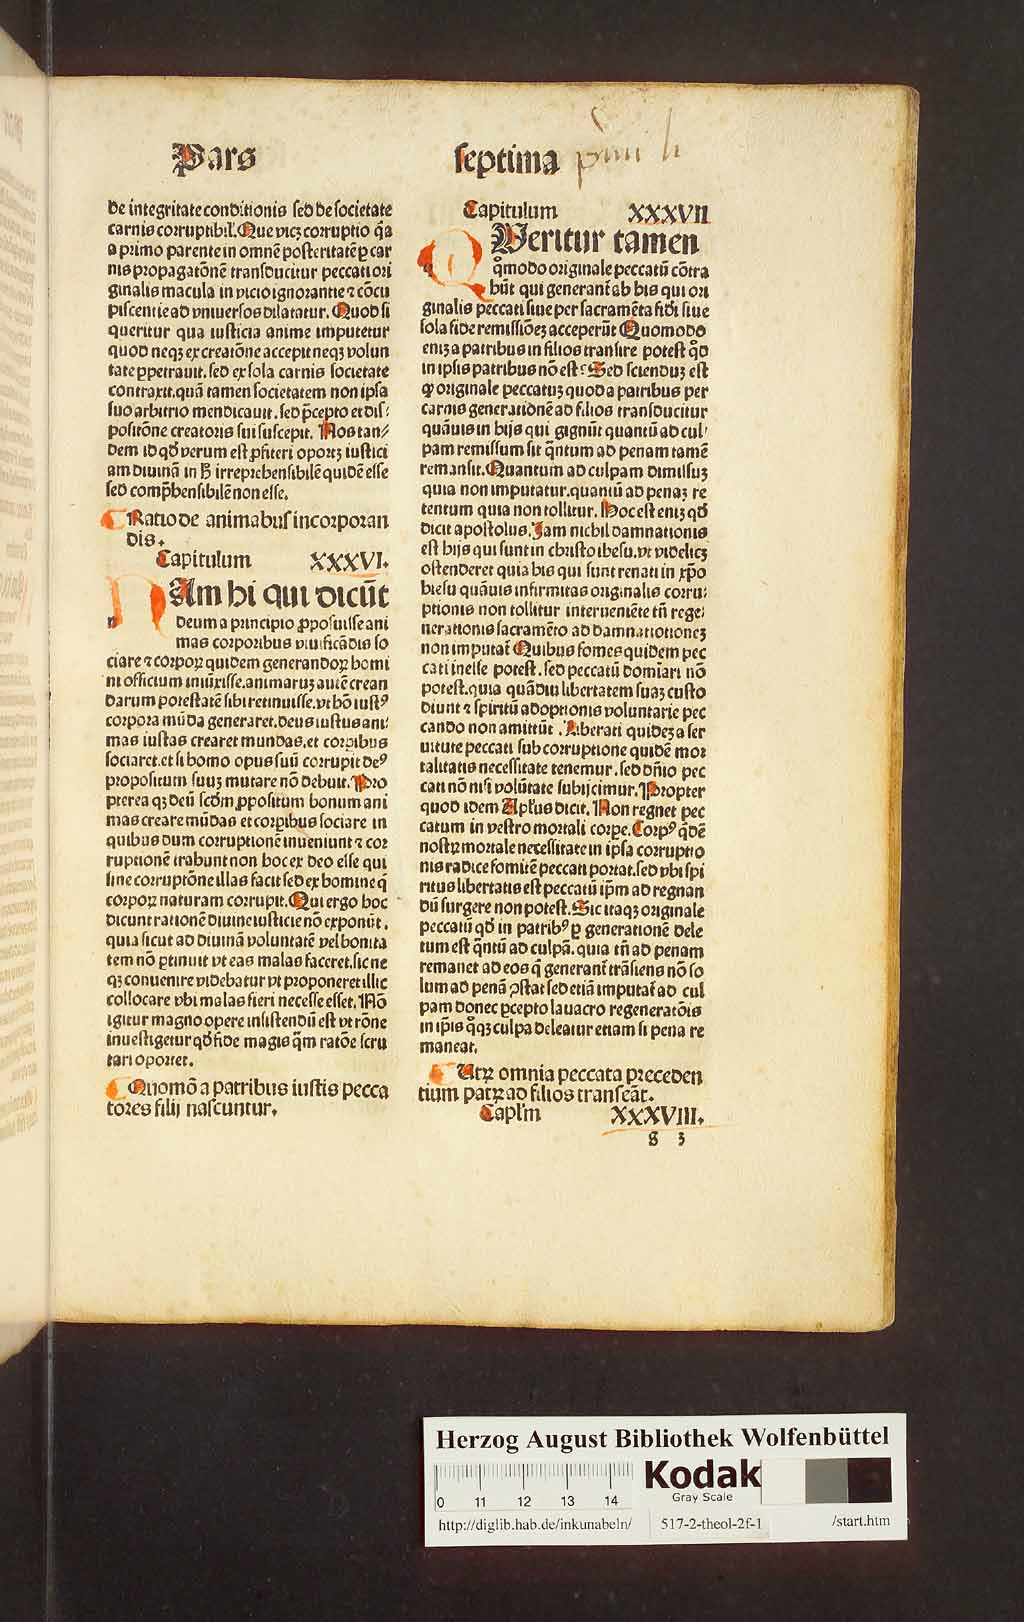 Pars septima
de integritate conditionis sed de societate
carnis corruptibil'. Que vicꝫ corruptio q̄a
a primo parente in omnē posteritatē ꝑ car
nis propagatōnē transducitur peccati ori
ginalis macula in vicio ignorantie ⁊ cōcu
piscentie ad vniuersos dilatatur. Quod si
queritur qua iusticia anime imputetur
quod neqꝫ ex creatōne accepit neqꝫ volun
tate ꝑpetrauit. sed ex sola carnis societate
contraxit. quā tamen societatem non ipsa
suo arbitrio mendicauit. sed p̄cepto et dis⸗
positōne creatoris sui suscepit. Nos tan⸗
dem id qď verum est ꝓfiteri oportꝫ iustici
am diuinā in ħ irreprehensibilē quidē esse
sed comp̄hensibilē non esse.
Ratio de animabus incorporan
dis.
Capitulum XXXVI.
NAm hi qui dicūt
deum a principio ꝓposuisse ani
mas corporibus viuificādis so
ciare ⁊ corporꝝ quidem generandorꝝ homi
ni officium iniūxisse. animarum autē crean
darum potestatē sibi retinuisse. vt hō iustꝰ
corpora mūda generaret. deus iustus ani⸗
mas iustas crearet mundas. et corꝑibus
sociaret. et si homo opus suū corrupit deꝰ
propositum suuꝫ mutare nō debuit. Pro
pterea qꝫ deū scďm ꝓpositum bonum ani
mas creare mūdas et corꝑibus sociare in
quibus dum corruptionē inueniunt ⁊ cor
ruptionē trahunt non hoc ex deo esse qui
sine corruptōne illas facit sed ex homine q̄
corporꝝ naturam corrupit. Qui ergo hoc
dicunt rationē diuine iusticie nō exponūt.
quia sicut ad diuinā voluntatē vel bonita
tem nō ꝑtinuit vt eas malas faceret. sic ne
qꝫ conuenire videbatur vt proponeret illic
collocare vbi malas fieri necesse esset. Nō
igitur magno opere insistendū est vt rōne
inuestigetur qď fide magis q̄m ratōe scru
tari oportet.
Quomō a patribus iustis pecca
tores filij nascuntur.
Capitulum XXXVII
QVeritur tamen
q̊modo originale peccatū cōtra
hūt qui generant᷑ ab his qui ori
ginalis peccati siue per sacramēta fidei siue
sola fide remissiōeꝫ acceperūt Quomodo
enim a patribus in filios transire potest qď
in ipsis patribus nō est. Sed sciendum est
ꝙ originale peccatum quod a patribus per
carnis generationē ad filios transducitur
quāuis in hijs qui gignūt quantū ad cul⸗
pam remissum sit q̄ntum ad penam tamē
remansit. Quantum ad culpam dimissuꝫ
quia non imputatur. quantū ad penaꝫ re
tentum quia non tollitur. Hoc est enim qď
dicit apostolus. Jam nichil damnationis
est hijs qui sunt in christo ihesu. vt videlicꝫ
ostenderet quia his qui sunt renati in xp̄o
hiesu quāuis infirmitas originalis corru⸗
ptionis non tollitur interueniēte tn̄ rege⸗
nerationis sacramēto ad damnationeꝫ
non imputat᷑ Quibus fomes quidem pec
cati inesse potest. sed peccatū domīari nō
potest. quia quādiu libertatem suaꝫ custo
diunt ⁊ spiritū adoptionis voluntarie pec
cando non amittūt. Liberati quideꝫ a ser
uitute peccati sub corruptione quidē mor
talitatis necessitate tenemur. sed dn̄io pec
cati nō nisi volūtate subijcimur. Propter
quod idem Apl'us dicit. Non regnet pec
catum in vestro mortali corꝑe. Corpꝰ q̄dē
nostrꝝ mortale necessitate in ipsa corruptio
nis radice fomitē peccati portat. sed vbi spi
ritus libertatis est peccatū ip̄m ad regnan
dū surgere non potest. Sic itaqꝫ originale
peccatū qď in patribꝰ ꝑ generationē dele
tum est q̄ntū ad culpā. quia tn̄ ad penam
remanet ad eos q̄ generant᷑ trāsiens nō so
lum ad penā ꝓstat sed etiā imputat᷑ ad cul
pam donec ꝑcepto lauacro regeneratōis
in ip̄is q̊qꝫ culpa deleatur etiam si pena re
maneat.
Utrꝝ omnia peccata preceden
tium patrꝝ ad filios transeāt.
Capl'm XXXVIII.
g 3
Herzog August Bibliothek Wolfenbüttel
0 11 12 13 14
Kodak
Gray Scale
http://diglib.hab.de/inkunabeln/ 517-2-theol-2f-1 /start.htm